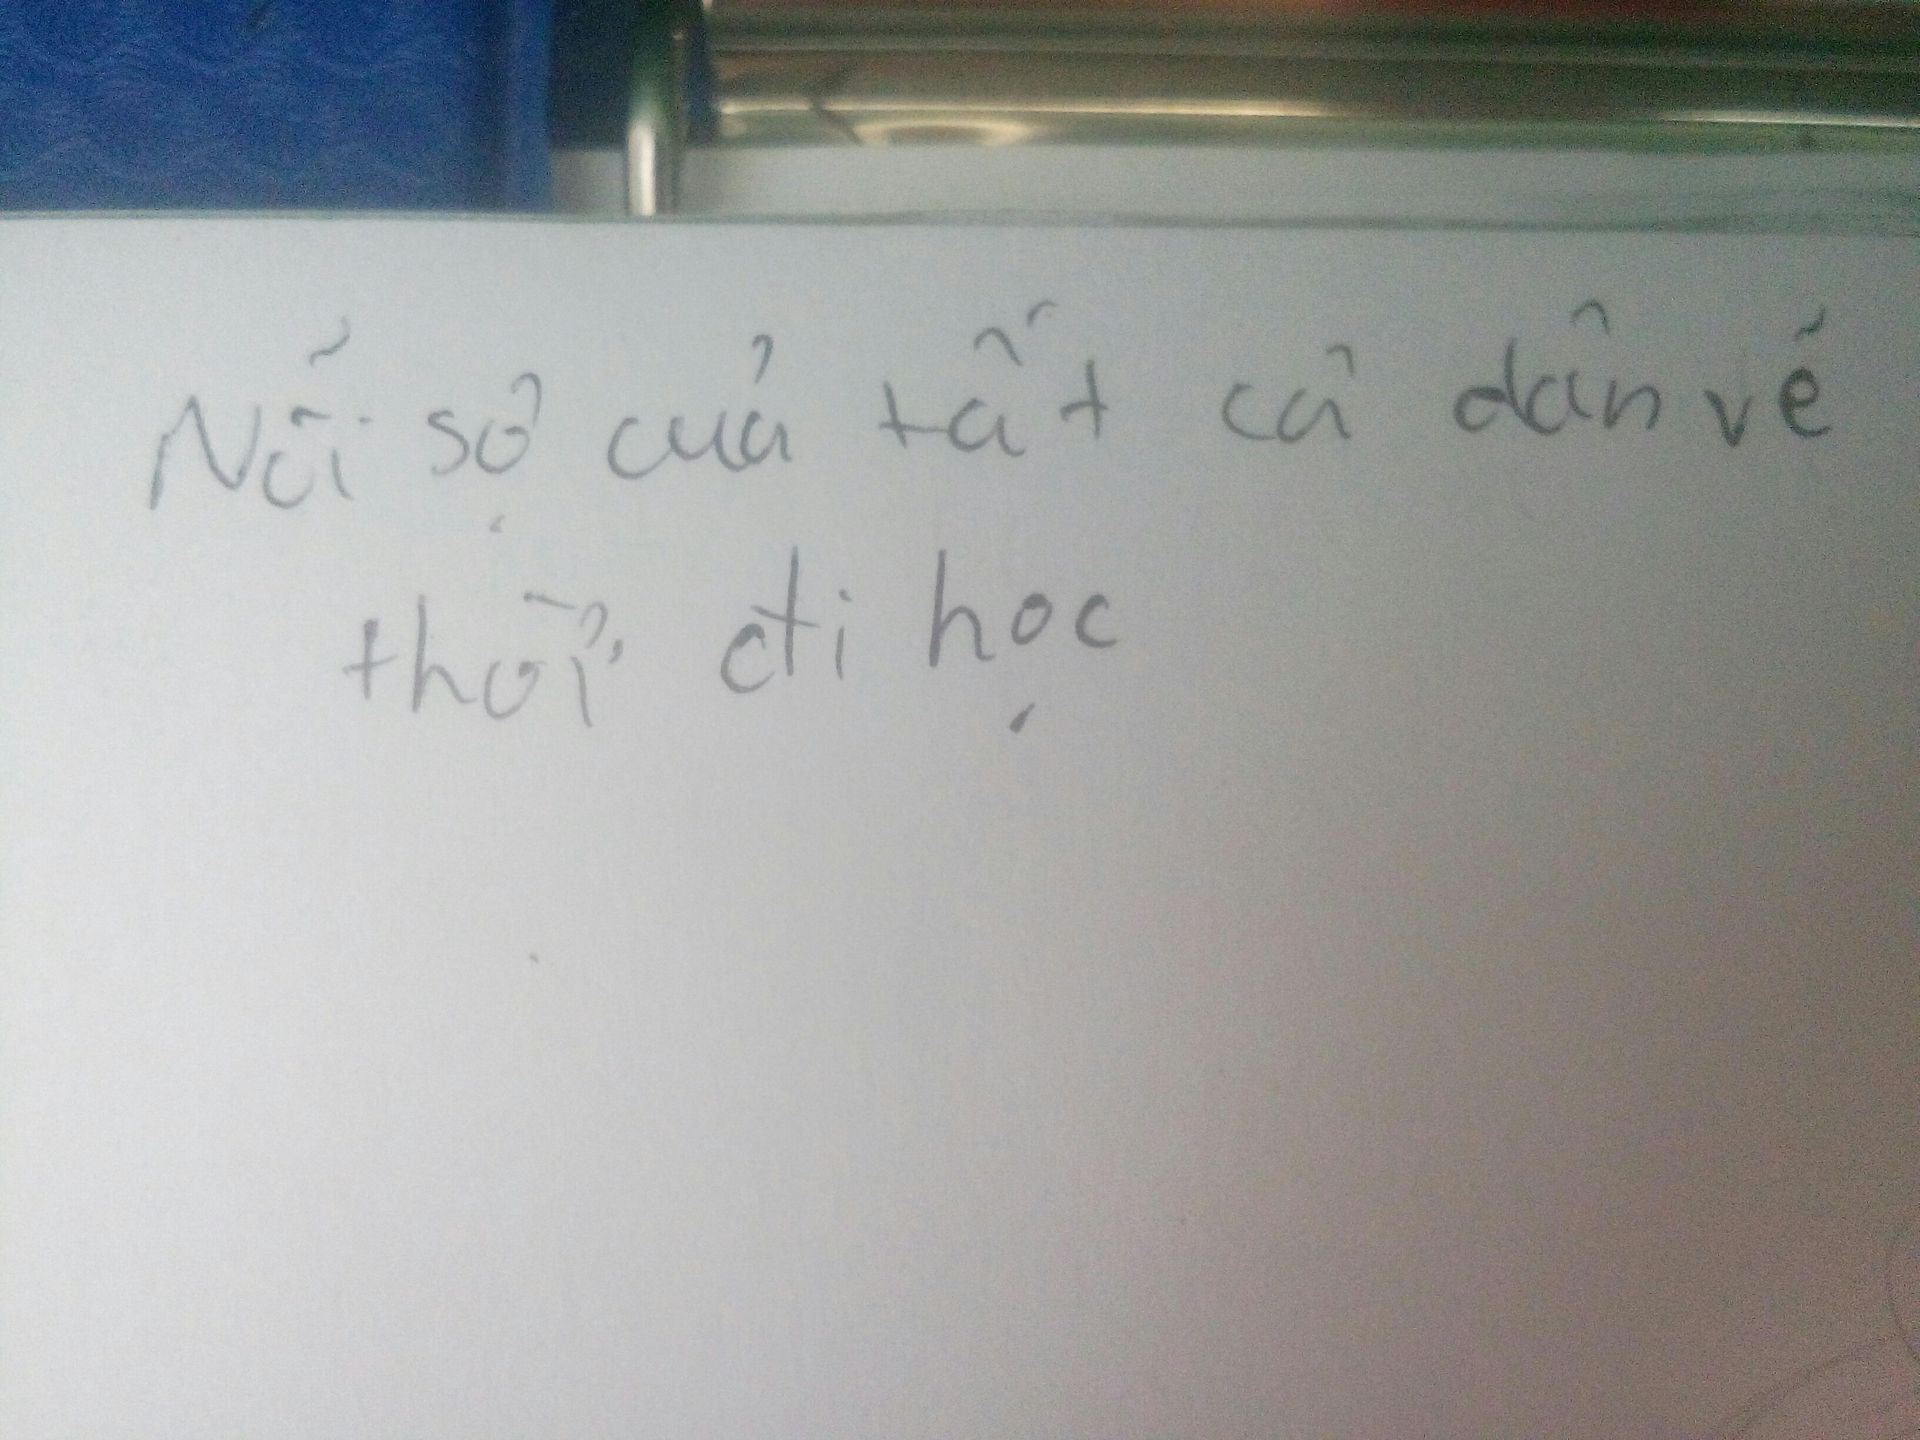 Nỗi sợ của tất cả dân vẽ
thời đi học